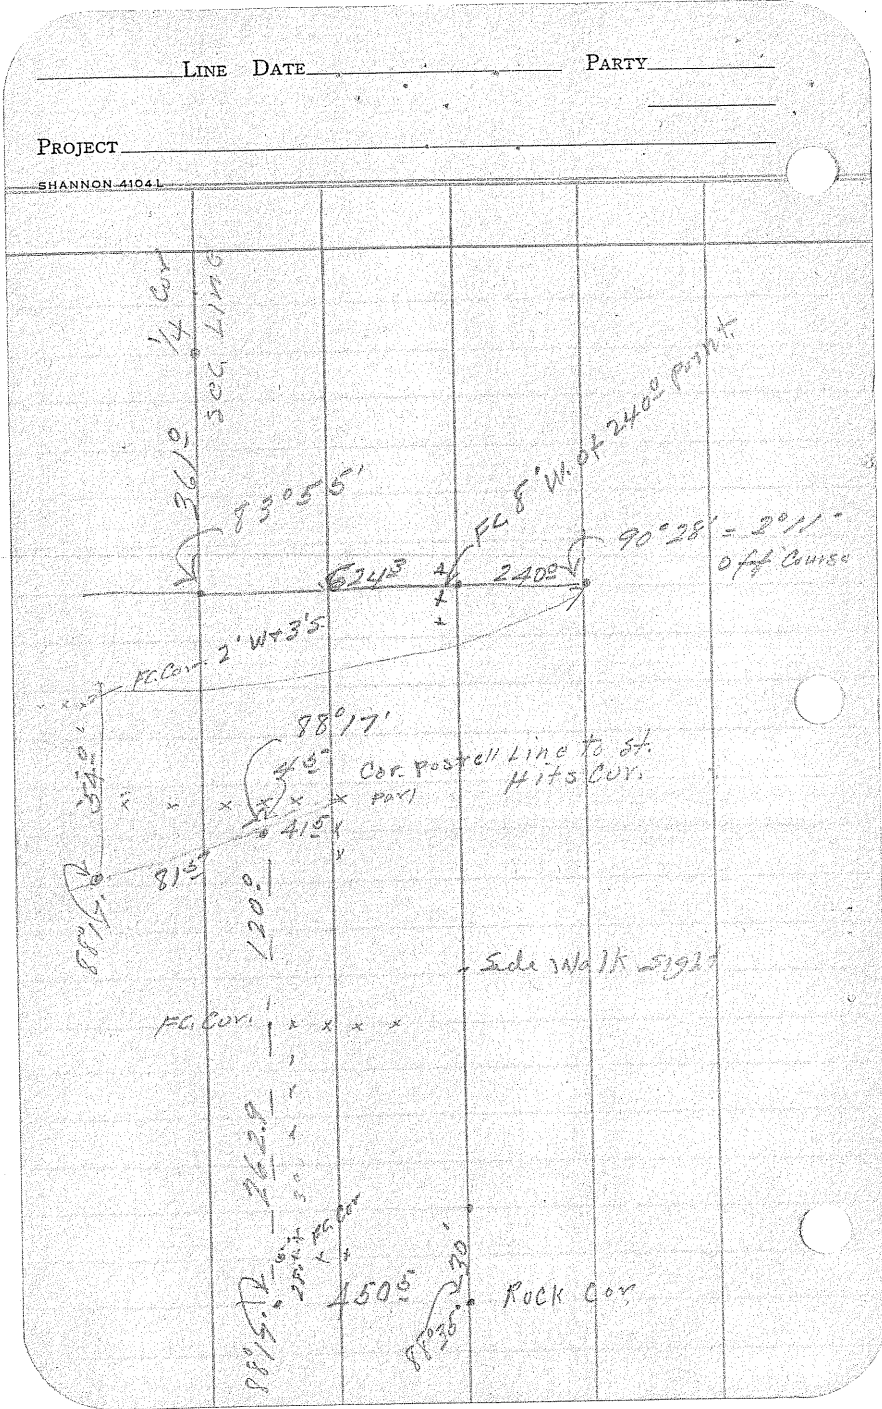 LINE DATE PARTY
PROJECT
SHANNON 4104L
1/4 Cor
SOC. LINE
361º
83°55'
Fc. 8' W. of 240º point.
624³
240º
90°28' = 2°11"
off Course
Fc. Cor. 2' W + 3' S.
88°17'
4⁵
Cor. post Line to St.
Hits Cor.
41⁵
54.0
81⁵
120.º
Side Walk sight
Fc. Cor.
262.9
3º
Fc. Cor
450⁵
230'
88°35'
Rock Cor.